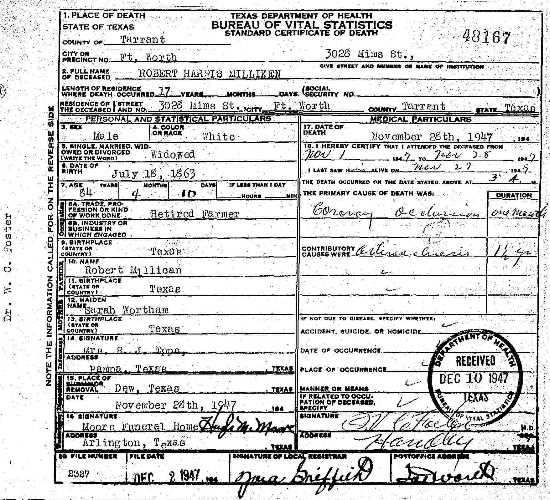 1. PLACE OF DEATH
STATE OF TEXAS
TEXAS DEPARTMENT OF HEALTH
BUREAU OF VITAL STATISTICS
STANDARD CERTIFICATE OF DEATH
48167
COUNTY OF Tarrant
CITY OR PRECINCT NO. Ft. Worth 3026 Mims St.,
GIVE STREET AND NUMBER OR NAME OF INSTITUTION
2. FULL NAME OF DECEASED ROBERT HARRIS MILLIKEN
LENGTH OF RESIDENCE WHERE DEATH OCCURRED 17 YEARS MONTHS DAYS (SOCIAL SECURITY NO.
RESIDENCE OF THE DECEASED STREET AND NO. 3026 Mims St. CITY Ft. Worth COUNTY Tarrant STATE Texas
PERSONAL AND STATISTICAL PARTICULARS
3. SEX Male 4. COLOR OR RACE White
5. SINGLE, MARRIED, WIDOWED OR DIVORCED (WRITE THE WORD) Widowed
6. DATE OF BIRTH July 18, 1863
7. AGE YEARS MONTHS DAYS IF LESS THAN 1 DAY
84 4 10 HOURS MIN
8A. TRADE, PROFESSION OR KIND OF WORK DONE Retired Farmer
8B. INDUSTRY OR BUSINESS IN WHICH ENGAGED
9. BIRTHPLACE (STATE OR COUNTRY) Texas
10. NAME Robert Millican
11. BIRTHPLACE (STATE OR COUNTRY) Texas
12. MAIDEN NAME Sarah Wortham
13. BIRTHPLACE (STATE OR COUNTRY) Texas
14. SIGNATURE Mrs. S. J.
ADDRESS Pampa, Texas TEXAS
15. PLACE OF REMOVAL Dew, Texas TEXAS
DATE November 28th, 1947 194
16. SIGNATURE Moore Funeral Home Hugh M. Moore
ADDRESS Arlington, Texas TEXAS
MEDICAL PARTICULARS
17. DATE OF DEATH November 28th, 1947 194
18. I HEREBY CERTIFY THAT I ATTENDED THE DECEASED FROM
Nov 1 1947 TO Nov 28 1947
I LAST SAW ALIVE ON Nov 27 1947
THE DEATH OCCURRED ON THE DATE STATED ABOVE AT 3 M.
THE PRIMARY CAUSE OF DEATH WAS: DURATION
Coronary occlusion one month
CONTRIBUTORY CAUSES WERE 1 ½ yr
IF NOT DUE TO DISEASE, SPECIFY WHETHER:
ACCIDENT, SUICIDE, OR HOMICIDE
DATE OF OCCURRENCE
PLACE OF OCCURRENCE
MANNER OR MEANS
IF RELATED TO OCCUPATION OF DECEASED, SPECIFY
SIGNATURE M.D.
ADDRESS Handley TEXAS
DEPARTMENT OF HEALTH
RECEIVED
DEC 10 1947
TEXAS
BUREAU OF VITAL STATISTICS
20. FILE NUMBER FILE DATE SIGNATURE OF LOCAL REGISTRAR POSTOFFICE ADDRESS
2327 DEC 2 1947 Griffith Ft Worth
NOTE THE INFORMATION CALLED FOR ON THE REVERSE SIDE
Dr. W. C. Foster